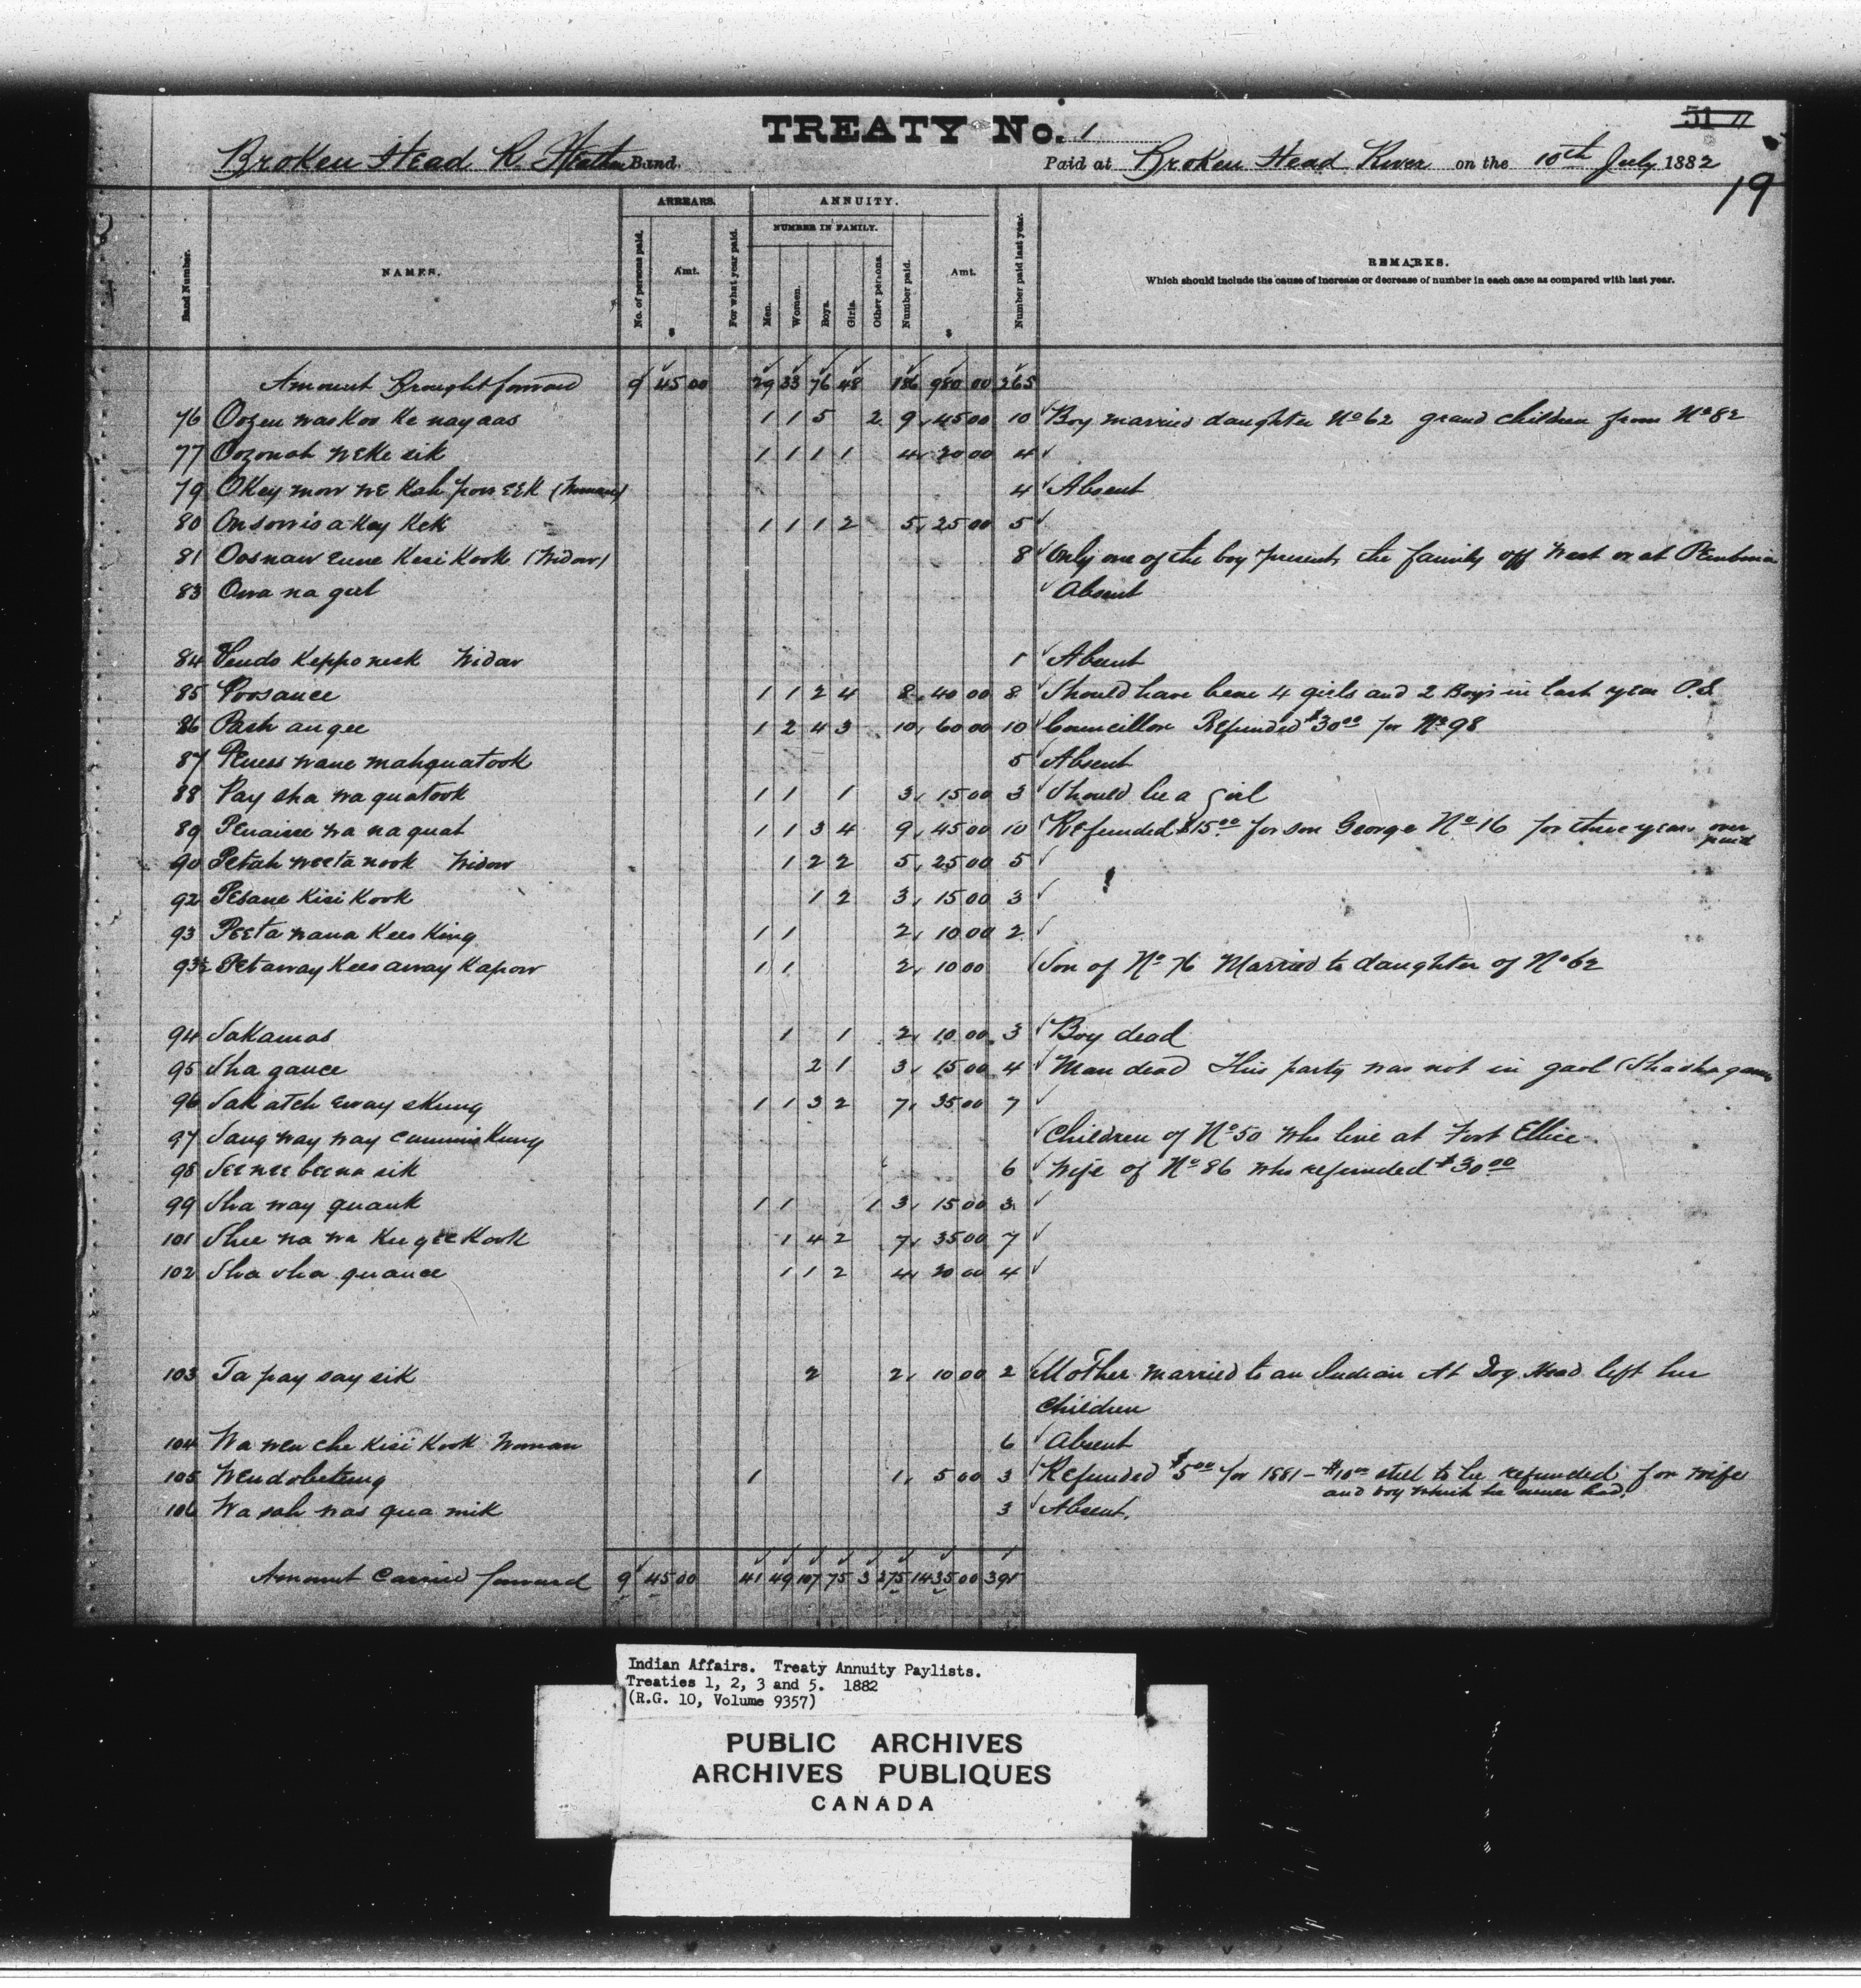 51 11
TREATY No. 1
Broken Head R. Band. Paid at Broken Head River on the 10th July 1882
19
Band Number. NAMES. ARREARS. No. of persons paid. Amt. $ For what year paid. ANNUITY. NUMBER IN FAMILY. Men. Women. Boys. Girls. Other persons. Number paid. Amt. $ Number paid last year. REMARKS.
Which should include the cause of increase or decrease of number in each case as compared with last year.
Amount Brought forward 9 45 00 29 33 76 48 186 980 00 265
76 Oozen was Koo Ke nay aas 1 1 5 2 9 45 00 10 Boy married daughter No 62 grand children from No 82
77 Oozonah weke sik 1 1 1 1 4 20 00 4
79 OKey mow we Kah pow eek (Woman) 4 Absent
80 Onsowis a Kay KeK 1 1 1 2 5 25 00 5
81 Oosnaw eune Kesi Kook (Widow) 8 Only one of the boy present, the family off West or at Pembina
83 Owa na geel Absent
84 Keppo neek Widow 1 Absent
85 Poosance 1 1 2 4 8 40 00 8 Should have been 4 girls and 2 Boys in last year P.S.
86 Pash an gee 1 2 4 3 10 60 00 10 Councillor Refunded $30 00 for No 98
87 Peness wane mahquatook 5 Absent
88 Pay sha wa quatook 1 1 1 3 15 00 3 Should be a girl
89 Penaisse wa na quat 1 1 3 4 9 45 00 10 Refunded $15 00 for son George No 16 for three years over paid
90 Petah weeta nook Widow 1 2 2 5 25 00 5
92 Pesane Kisi Kook 1 2 3 15 00 3
93 Peeta wana Kees King 1 1 2 10 00 2
93½ Petaway Kees away Kapow 1 1 2 10 00 Son of No 76 Married to daughter of No 62
94 Sakamas 1 1 2 10 00 3 Boy dead
95 Sha gance 2 1 3 15 00 4 Man dead This party was not in gaol
96 Sak atch eway skung 1 1 3 2 7 35 00 7
97 Sang way way cummis Kung Children of No 50 who live at Fort Ellice
98 See nee beena sik 6 Wife of No 86 who refunded $30 00
99 Sha way quank 1 1 1 3 15 00 3
101 Shee na wa Kee gee Kook 1 4 2 7 35 00 7
102 Sha sha quance 1 1 2 4 20 00 4
103 Ta pay say sik 2 2 10 00 2 Mother married to an Indian at Dog Head left her
children
104 Wa wen che Kisi Kook Woman 6 Absent
105 Wendobetung 1 1 5 00 3 Refunded $5 00 for 1881 - $10 00 still to be refunded for wife
and boy which he never had.
106 Wa sah was qua mik 3 Absent.
Amount Carried forward 9 45 00 41 49 107 75 3 275 1435 00 391
Indian Affairs. Treaty Annuity Paylists.
Treaties 1, 2, 3 and 5. 1882
(R.G. 10, Volume 9357)
PUBLIC ARCHIVES
ARCHIVES PUBLIQUES
CANADA